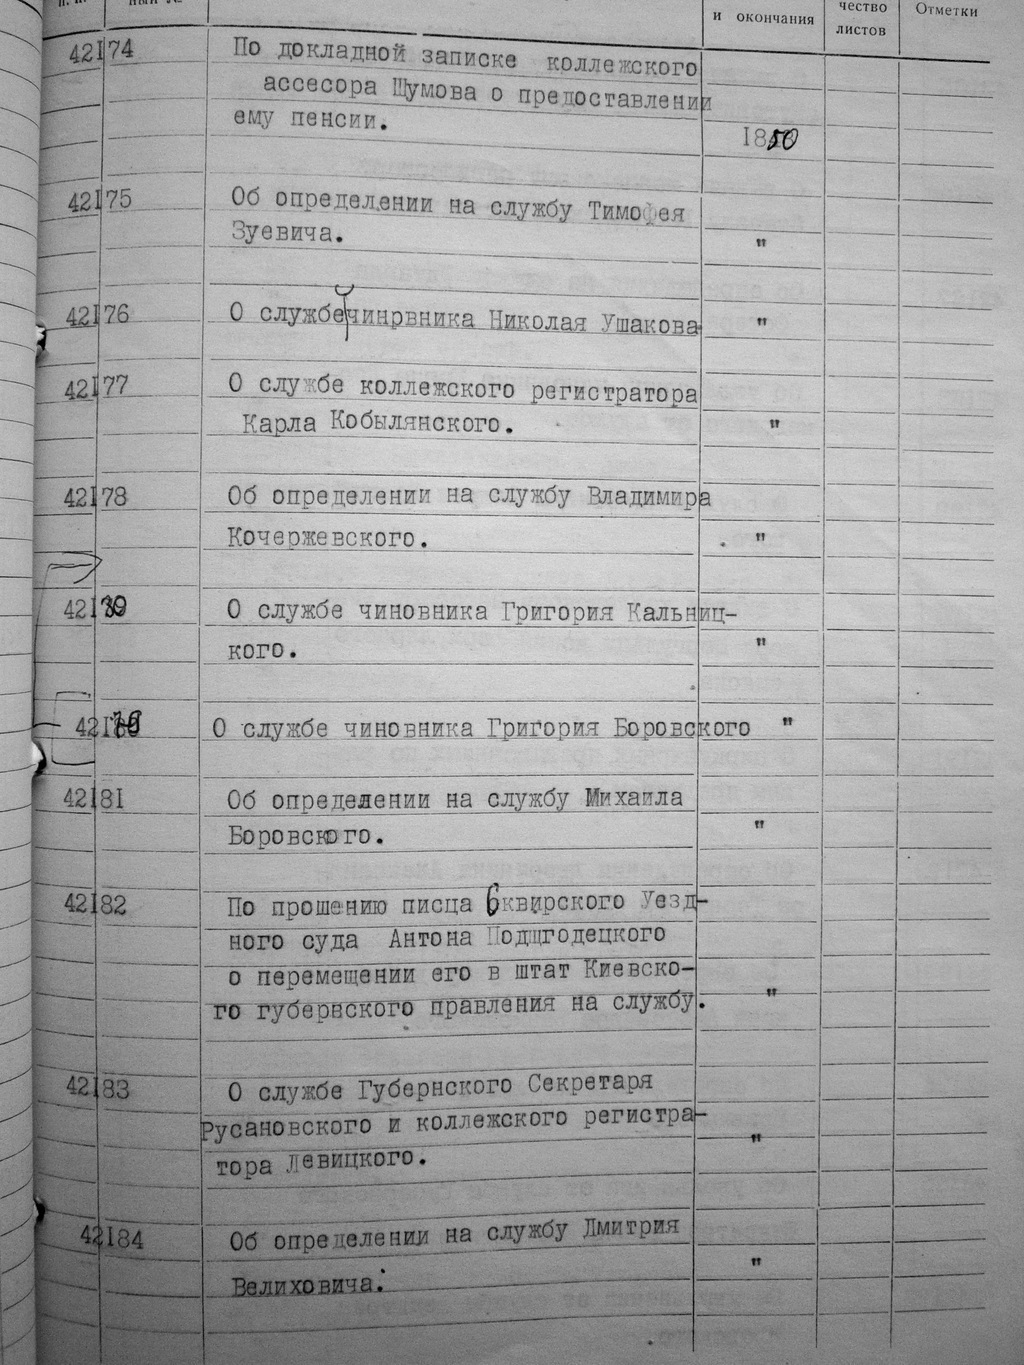 и окончания
чество
листов
Отметки
42174 По докладной записке коллежского
ассесора Шумова о предоставлении
ему пенсии.
1850
42175 Об определении на службу Тимофея
Зуевича. "
42176 О службе чинрвника Николая Ушакова "
42177 О службе коллежского регистратора
Карла Кобылянского. "
42178 Об определении на службу Владимира
Кочержевского. "
42179 О службе чиновника Григория Кальниц-
кого. "
О службе чиновника Григория Боровского "
42181 Об определении на службу Михаила
Боровского. "
42182 По прошению писца Сквирского Уезд-
ного суда Антона Подщгодецкого
о перемещении его в штат Киевско-
го губервского правления на службу. "
42183 О службе Губернского Секретаря
Русановского и коллежского регистра-
тора Левицкого. "
42184 Об определении на службу Дмитрия
Велиховича. "